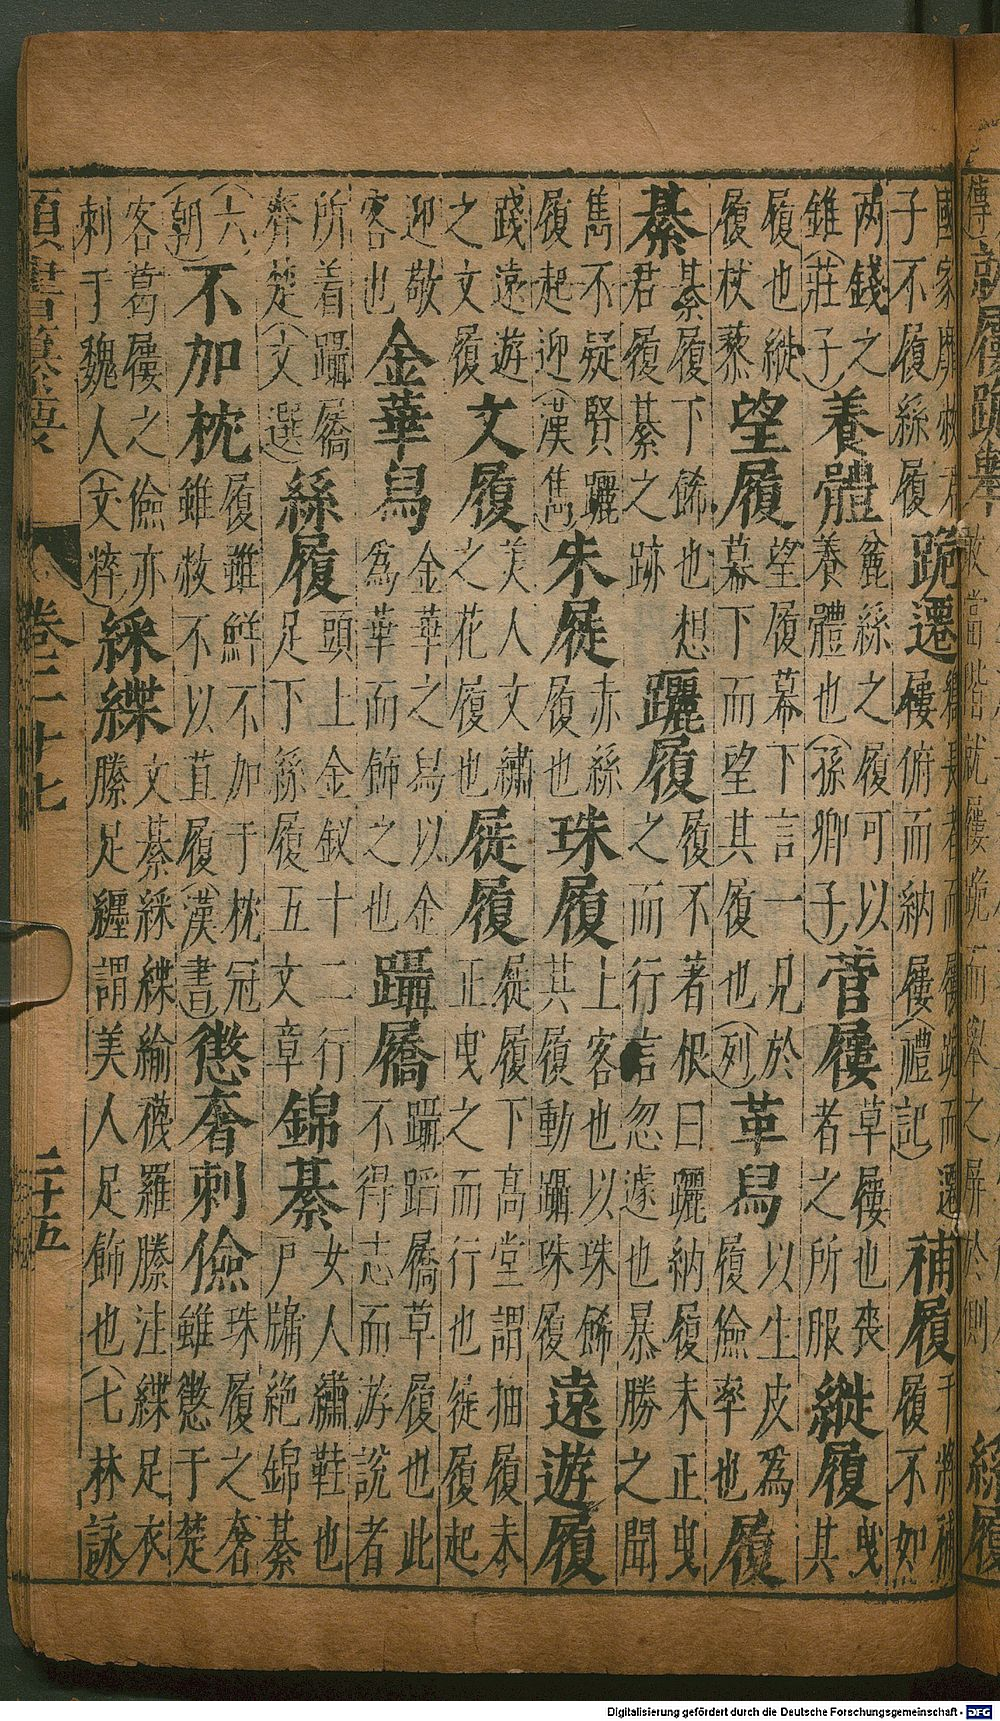 國家靡敝君子不履絲履跪遷鄉長者而屨跪而遷屨俯而納屨(禮記)補履干將補履不如
两錢之錐(莊子)養體麄絲之履可以養體也(孫卿子)菅屨草屨也喪者之所服縰履曳其
履也縰履杖藜望履望履幕下言一見於幕下而望其履也(列)革舄以生皮爲履儉率也履
綦綦履下餙也想君履綦之跡躧履履不著根曰躧納履未正曳之而行言忽遽也暴勝之聞
雋不疑賢躧履起迎(漢雋)朱屣赤絲履也珠履上客也以珠餙其履動躡珠履遠遊履
踐遠遊之文履文履美人文繡之花履也屣履屣履下高堂謂抽履未正曳之而行也徙履起
迎敬客也金華舄金華之舄以金為華而飾之也躡屩躡蹈屩草履也此不得志而游説者
所着躡屩齊楚(文選)絲履頭上金釵十二行足下絲履五文章錦綦女人繡鞋也尸牗絶錦綦
(六朝)不加枕履雖鮮不加于枕冠雖敝不以苴履(漢書)懲奢刺儉珠履之奢雖懲于楚
客葛屨之儉亦刺于魏人(文粹)綵緤文綦綵緤綸襪羅縢注緤足衣縢足纒謂美人足飾也(七林詠
類書纂要 卷二十七 二十五
Digitalisierung gefördert durch die Deutsche Forschungsgemeinschaft - DFG